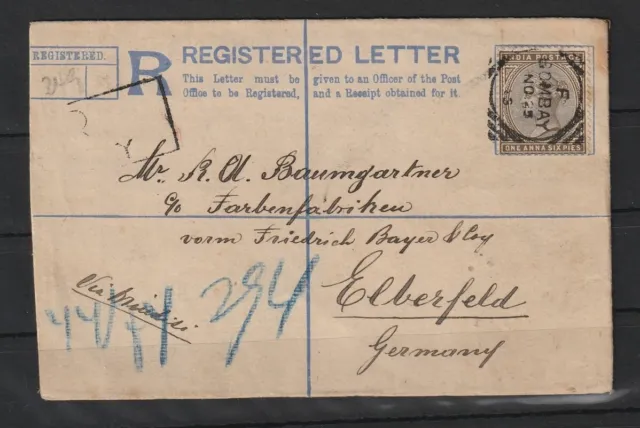 REGISTERED.
R
REGISTERED LETTER
This Letter must be given to an Officer of the Post
Office to be Registered, and a Receipt obtained for it.
INDIA POSTAGE
ONE ANNA SIX PIES
F
BOMBAY
NO 25
Mr. R. A. Baumgartner
c/o Farbenfabriken
vorm Friedrich Bayer & Coy
Elberfeld
Germany
Via Brindisi
294